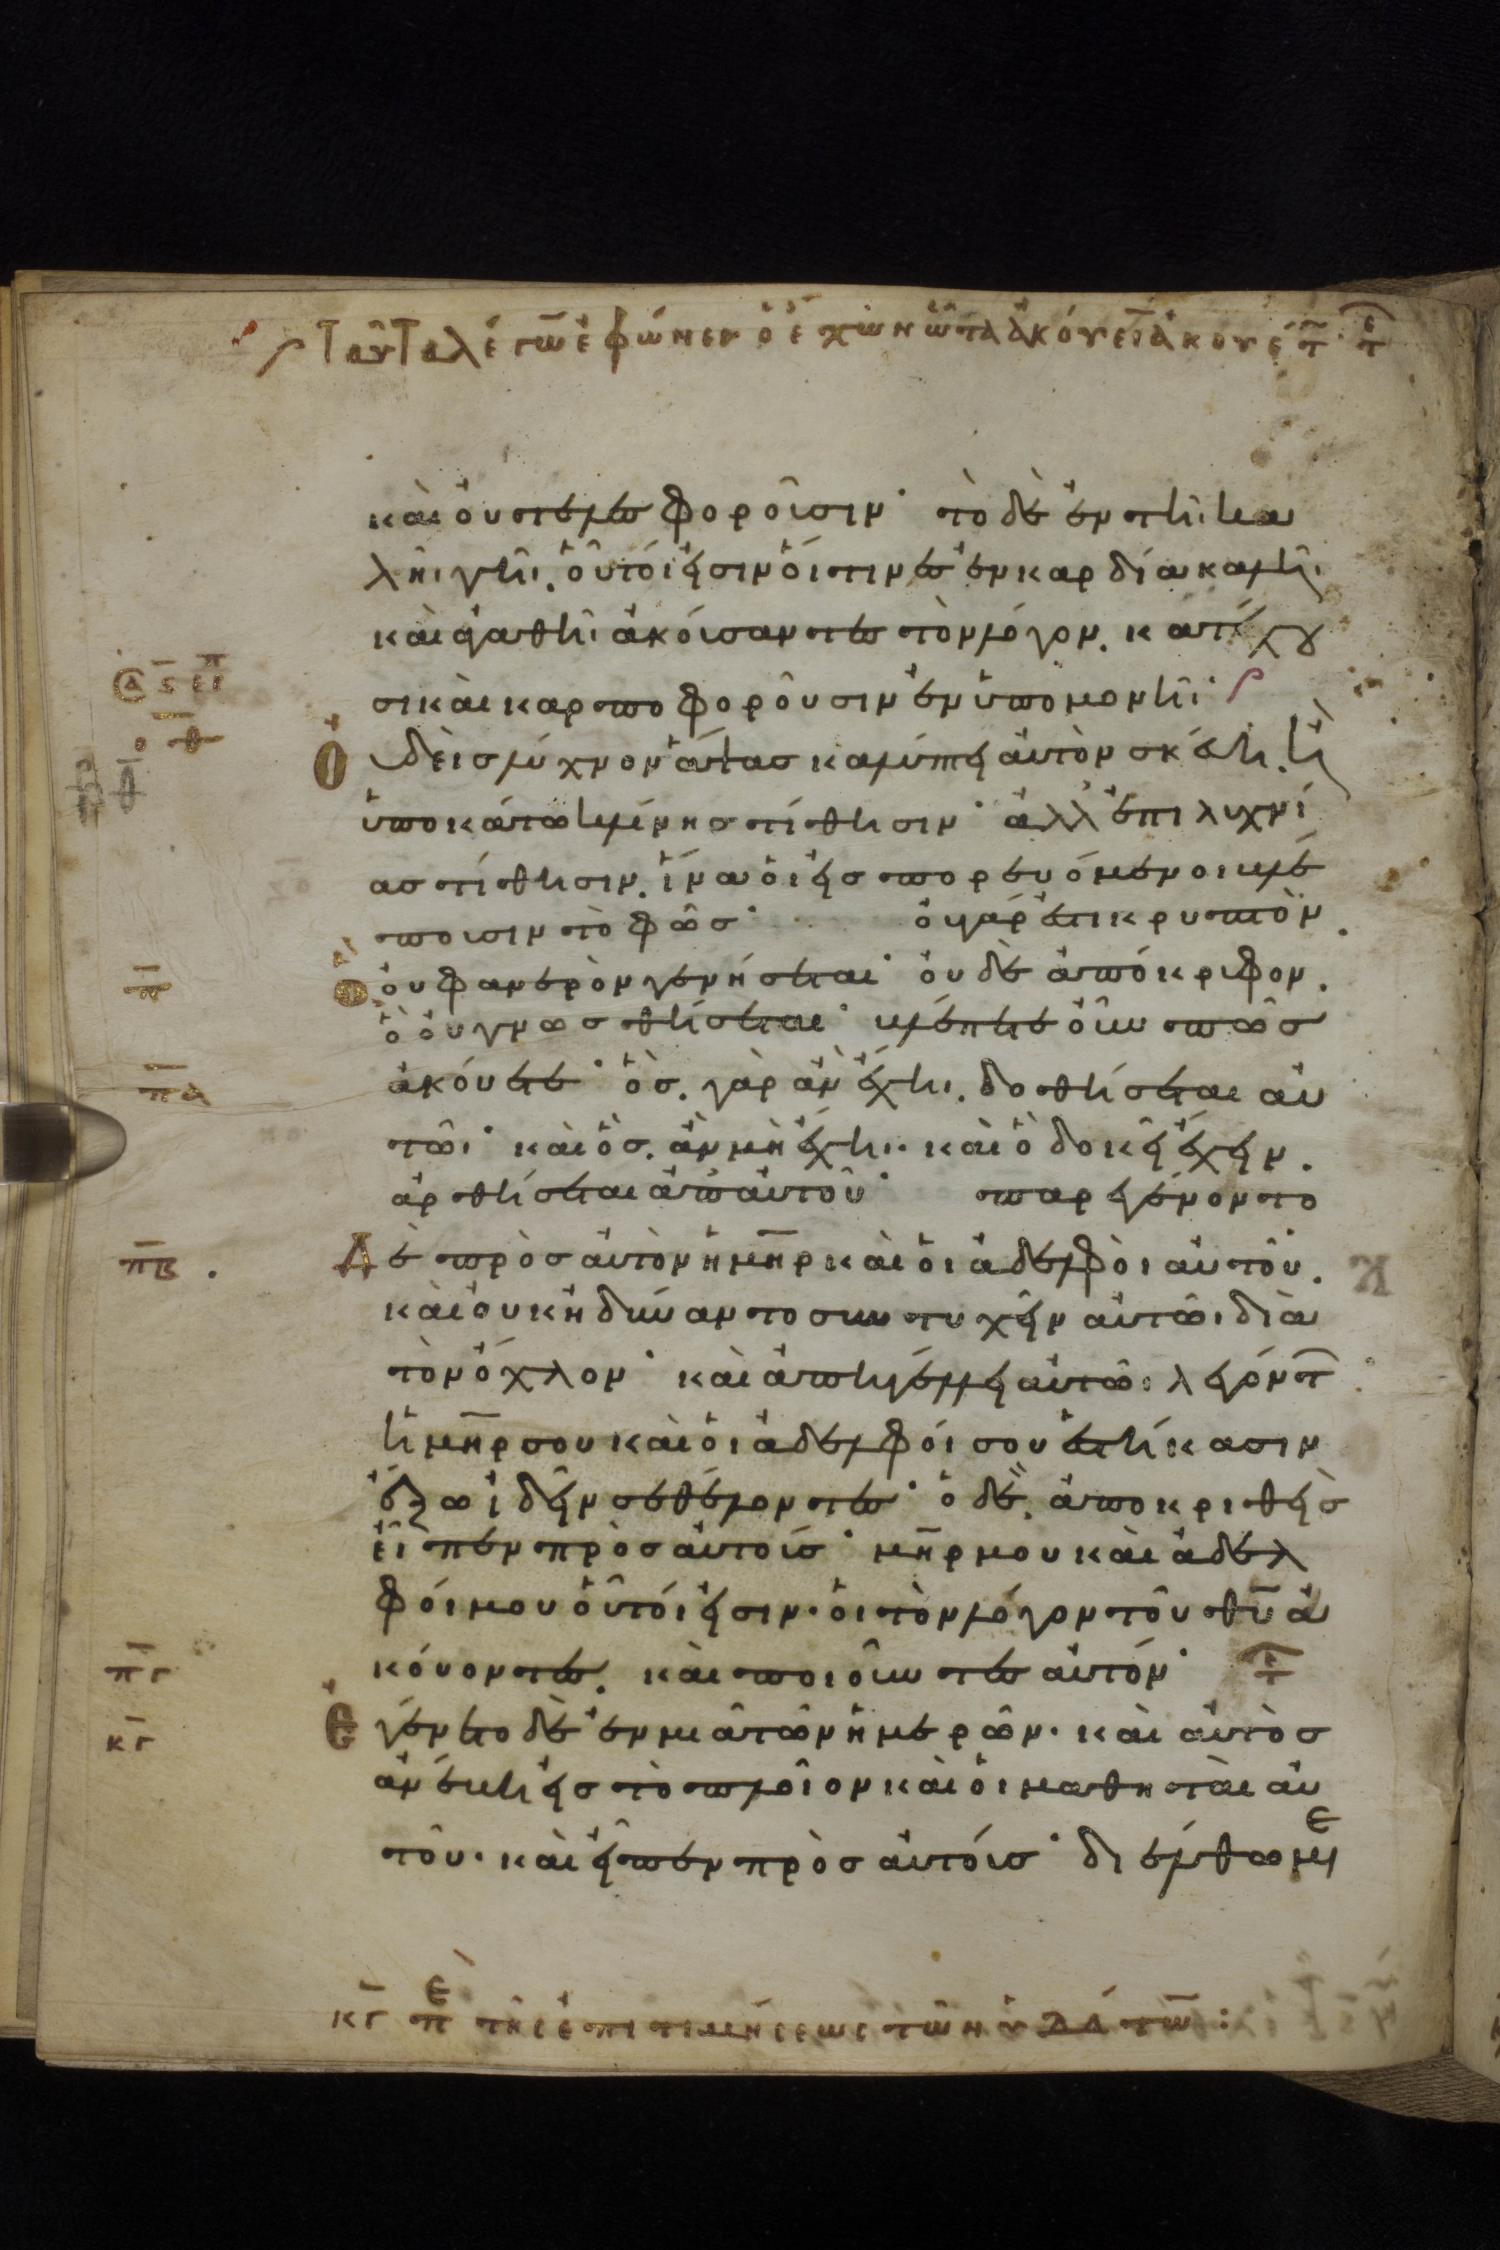 Ταῦτα λέγω̅ ἐφώνει ὁ ἔχων ὦτα ἀκούει̅ ἀκουέτ̅ τε
και ου τελεσφοροῦσιν· τὸ δὲ ἐν τῆι κα
λῆι γῆι. οὗτοί εἰσιν οἵτινες ἐν καρδία καλῆ
καὶ ἀγαθῆι ἀκούσαντες τὸν λόγον. κατέχου
σι καὶ καρποφοροῦσιν ἐν ὑπομονῆι·
Ο υδεὶς λύχνον ἅψας καλύπτει αὐτὸν σκέυει. ἢ
ὑποκάτω κλίνης τίθησιν· ἀλλ' ἐπι λυχνί
ας τίθησιν. ἵνα οἱ εἰσπορευόμενοι βλέ
πουσιν τὸ φῶς· ὀυ γάρ ἐστι κρυπτὸν.
ὃ ὀυ φανερὸν γενήσεται· ὀυδὲ ἀπόκρυφον.
ὃ ὀυ γνωσθήσεται· βλέπετε οὖν πῶς
ἀκούετε· ὃς. γὰρ ἀν ἔχηι. δοθήσεται αὐ
τῶι· καὶ ὃς. ἀν μὴ ἔχηι. καὶ ὃ δοκεῖ ἔχειν.
ἀρθήσεται ἀπ' αὐτοῦ· παρεγένοντο
Δ ὲ πρὸς αὐτὸν ἡ μη̅ρ καὶ ὁι ἀδελφὸι αὐτοῦ.
καὶ ὀυκ ἠδύναντο συντυχεῖν αὐτῶι διὰ
τὸν ὄχλον· καὶ ἀπηγγέλη αὐτῶ λεγόντ
ἡ μη̅ρ σου καὶ ὁι ἀδελφόι σου ἑστήκασιν
ἔξω ἰδεῖν σε θέλοντες· ὁ δὲ. ἀποκριθεὶς
εἶπεν πρὸς αὐτούς· μη̅ρ μου καὶ ἀδελ
φόι μου οὗτόι εἰσιν· ὁι τὸν λόγον τοῦ θυ̅ ἀ
κόυοντες. καὶ ποιοῦντες αὐτόν· τε
Ε γένετο δὲ ἐν μιᾶ τῶν ἡμερῶν· καὶ αὐτὸς
ἀνέβη εἰς τὸ πλοῖον καὶ ὁι μαθηταὶ αὐ
τοῦ· καὶ εἶπεν πρὸς αὐτόυς· διέλθωμε
ο̅θ̅
π̅
π̅α̅
π̅β̅ .
π̅γ̅
κ̅γ̅
κ̅γ̅ πε τῆς ἐπιτιμήσεως τῶν ὑδάτω̅ :